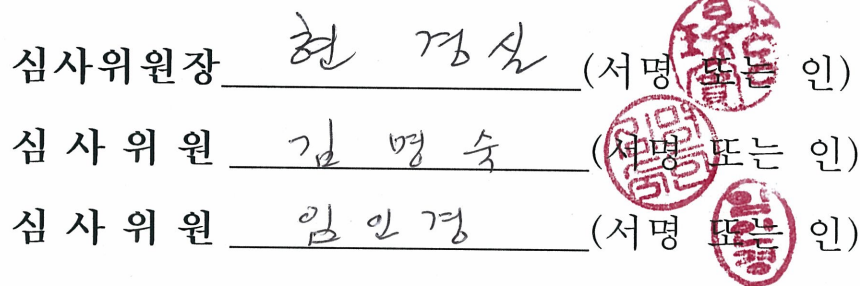 심사위원장 현 경실 (서명 또는 인)
심 사 위 원 김 명 숙 (서명 또는 인)
심 사 위 원 임 인 경 (서명 또는 인)